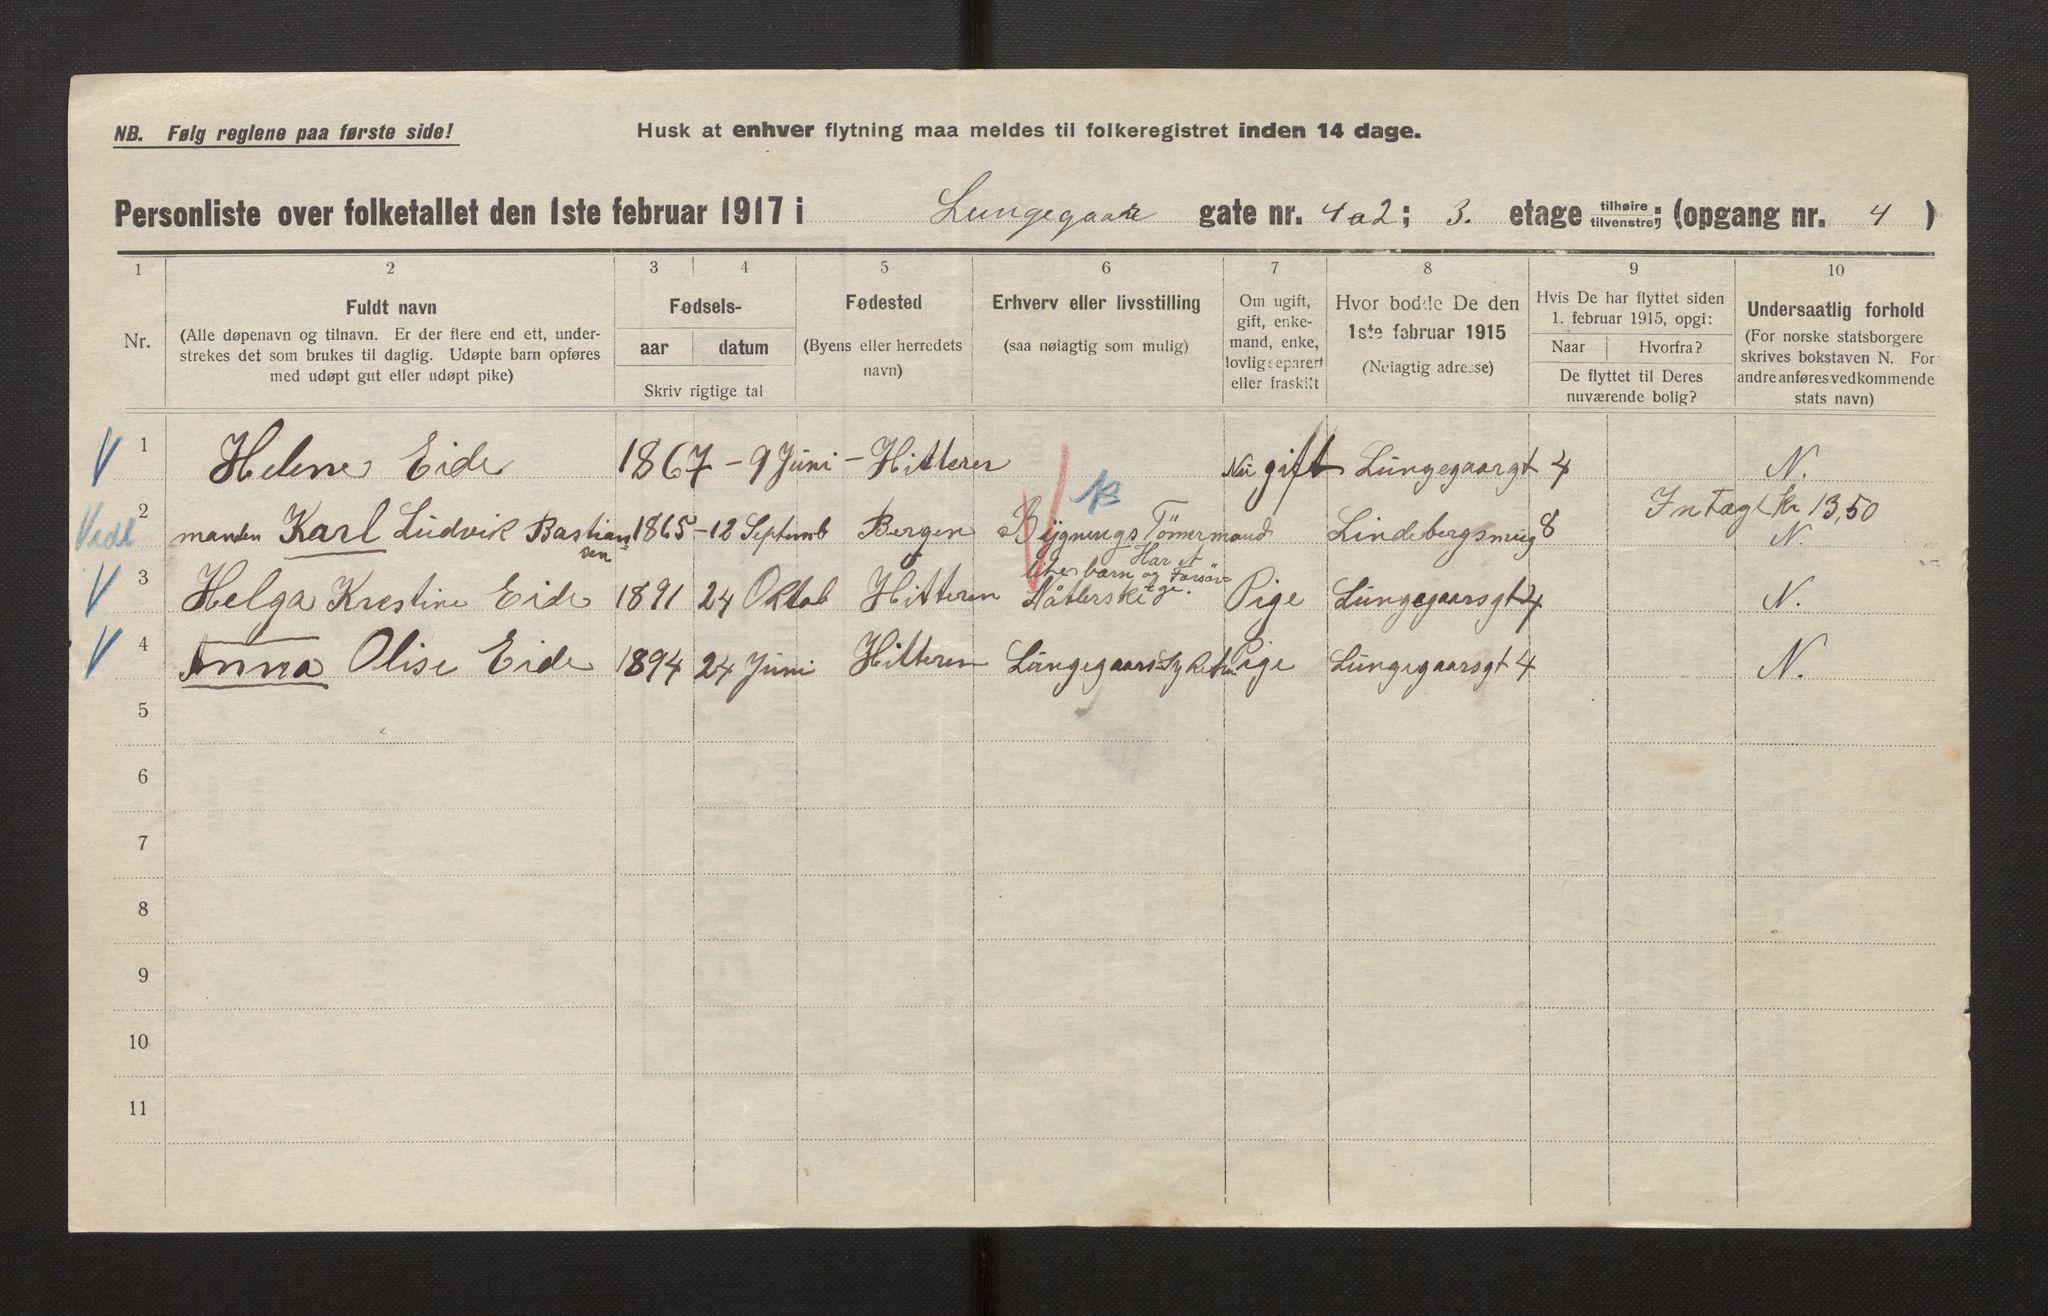 NB. Følg reglene paa første side!
Husk at enhver flytning maa meldes til folkeregistret inden 14 dage.
Personliste over folketallet den 1ste februar 1917 i Lungegaard gate nr. 4a2; 3. etage tilhøire tilvenstre; (opgang nr. 4)
1 2 3 4 5 6 7 8 9 10
Nr.
Fuldt navn
(Alle døpenavn og tilnavn. Er der flere end ett, under-
strekes det som brukes til daglig. Udøpte barn opføres
med udøpt gut eller udøpt pike)
Fødsels-
aar datum
Skriv rigtige tal
Fødested
(Byens eller herredets
navn)
Erhverv eller livsstilling
(saa nøiagtig som mulig)
Om ugift,
gift, enke-
mand, enke,
lovlig separert
eller fraskilt
Hvor bodde De den
1ste fabruar 1915
(Nøiagtig adresse)
Hvis De har flyttet siden
1. februar 1915, opgi:
Naar Hvorfra?
De flyttet til Deres
nuværende bolig?
Undersaatlig forhold
(For norske statsborgere
skrives bokstaven N. For
andre anføres vedkommende
stats navn)
V 1 Helene Eide 1867 - 9 Juni - Hitteren gift Lungegaargt 4 N.
Intægt kr 13,50
2 manden Karl Ludvik Bastian 1865 - 12 Septemb Bergen Bygnings Tömermand Lindebergsmug 8 N.
sen
Har et
litet barn og Forsör
V 3 Helga Krestine Eide 1891 24 Oktob Hitteren Pige Lungegaarsgt 4 N.
V 4 Anna Olise Eide 1894 24 Juni Hitteren Lungegaars Pige Lungegaarsgt 4 N.
5
6
7
8
9
10
11